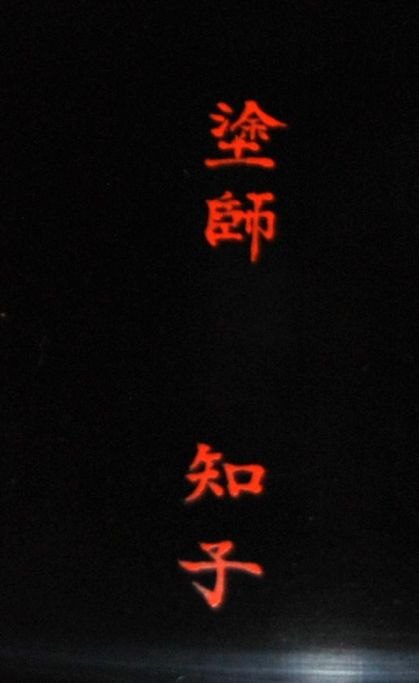 塗師 知子